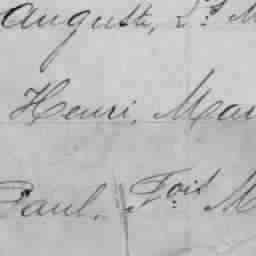 Auguste, 2d M
Henri, Mar
Paul, Fois M